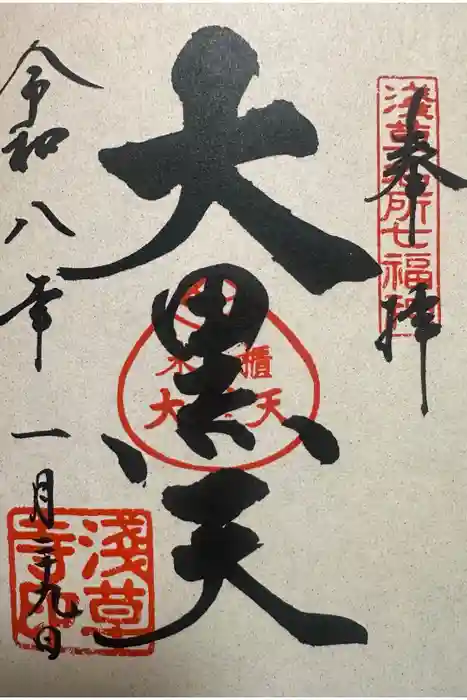 奉拝
浅草名所七福神
大黒天
米櫃
大黒天
令和八年一月二十九日
浅草寺印